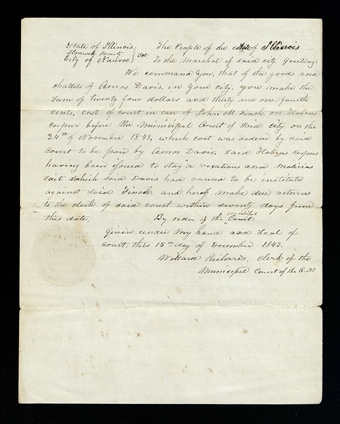 State of Illinois, The People of the State of Illinois
Hancock County Sct.
City of Nauvoo To the Marshal of said city Greeting:
We command You, that of the goods and
chattels of Amos Davis, in your city, you make the
Sum of twenty four dollars and thirty one fourth
cents, cost of court in case of John M. Finch on Habeas
corpus before the Municipal Court of said city on the
24th of November 1843, which cost was ordered by said
Court to be paid by Amos Davis, said Habeas corpus
having been issued to stay a vexatious and malicious
suit which said Davis had caused to be instituted
against said Finch. and hereof make due return
to the clerk of said court within seventy days from
this date. By order of the Municipal Court.
Given under my hand and seal of
court, this 15th day of December 1843.
Willard Richards, Clerk of the
Municipal Court of the C. N.